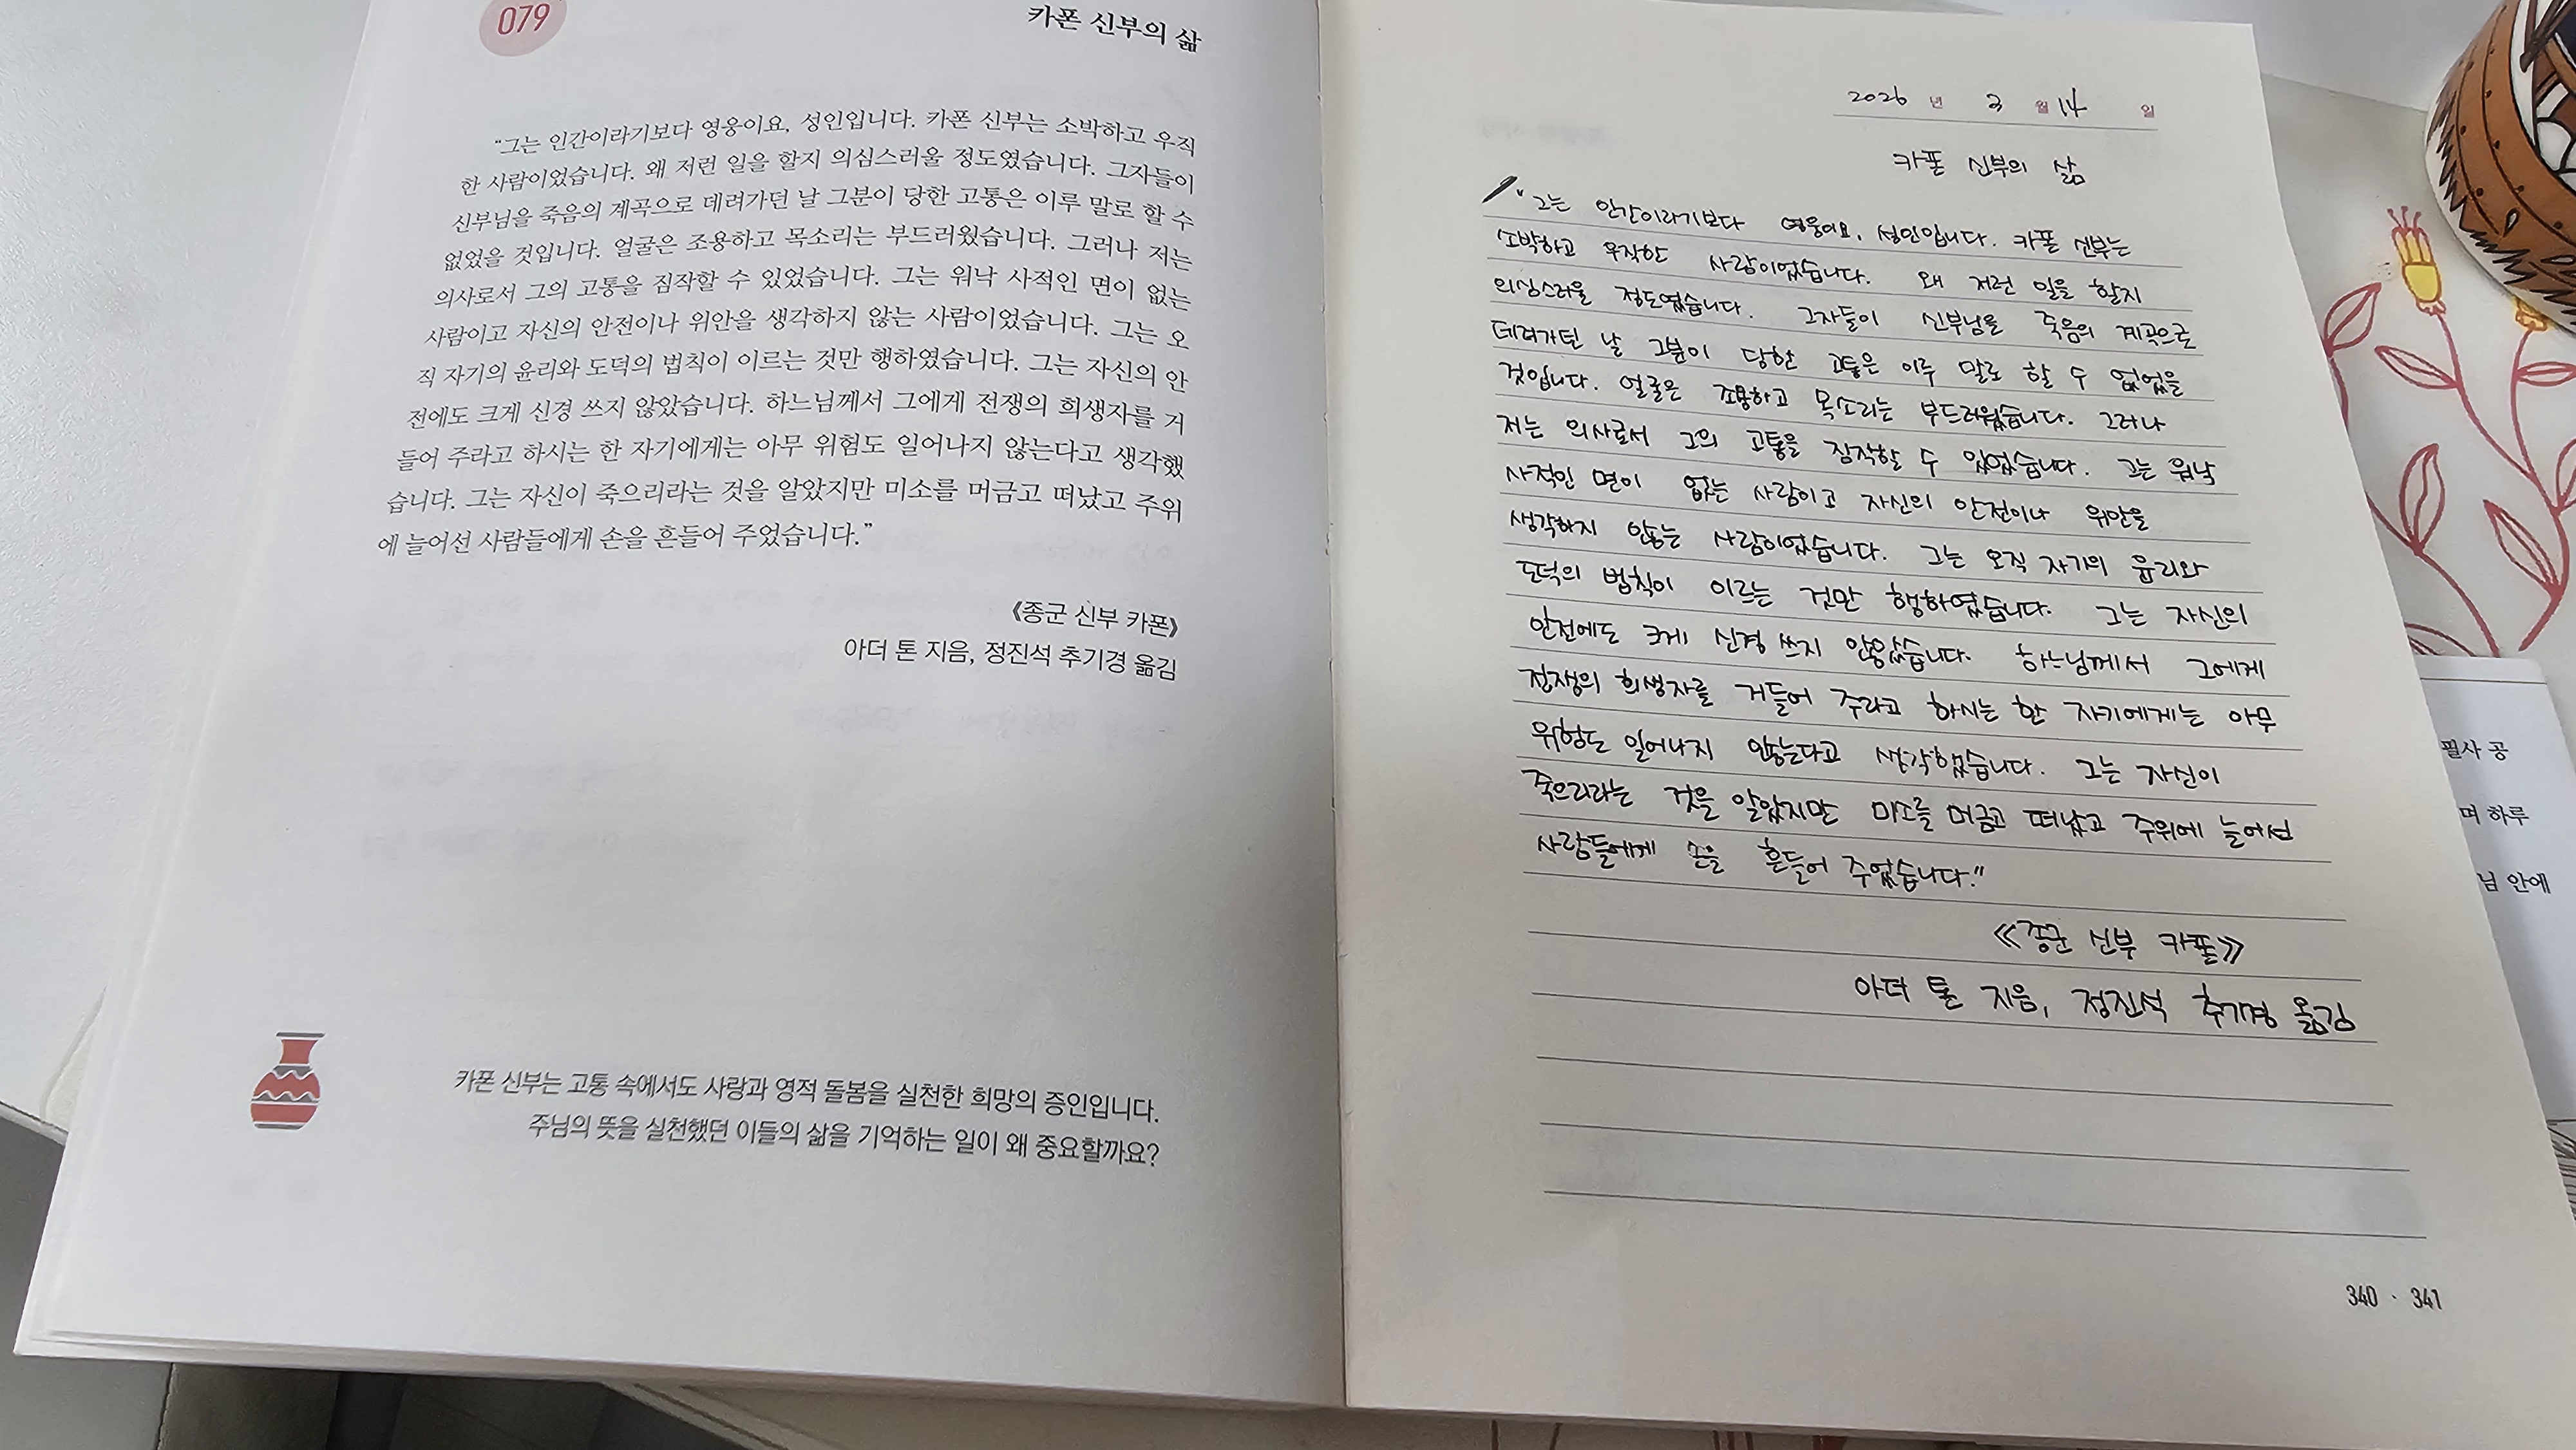 079
카폰 신부의 삶
“그는 인간이라기보다 영웅이요, 성인입니다. 카폰 신부는 소박하고 우직
한 사람이었습니다. 왜 저런 일을 할지 의심스러울 정도였습니다. 그자들이
신부님을 죽음의 계곡으로 데려가던 날 그분이 당한 고통은 이루 말로 할 수
없었을 것입니다. 얼굴은 조용하고 목소리는 부드러웠습니다. 그러나 저는
의사로서 그의 고통을 짐작할 수 있었습니다. 그는 워낙 사적인 면이 없는
사람이고 자신의 안전이나 위안을 생각하지 않는 사람이었습니다. 그는 오
직 자기의 윤리와 도덕의 법칙이 이르는 것만 행하였습니다. 그는 자신의 안
전에도 크게 신경 쓰지 않았습니다. 하느님께서 그에게 전쟁의 희생자를 거
들어 주라고 하시는 한 자기에게는 아무 위험도 일어나지 않는다고 생각했
습니다. 그는 자신이 죽으리라는 것을 알았지만 미소를 머금고 떠났고 주위
에 늘어선 사람들에게 손을 흔들어 주었습니다.”
《종군 신부 카폰》
아더 톤 지음, 정진석 추기경 옮김
카폰 신부는 고통 속에서도 사랑과 영적 돌봄을 실천한 희망의 증인입니다.
주님의 뜻을 실천했던 이들의 삶을 기억하는 일이 왜 중요할까요?
2026 년 2 월 14 일
카폰 신부의 삶
“그는 인간이라기보다 영웅이요, 성인입니다. 카폰 신부는
소박하고 우직한 사람이었습니다. 왜 저런 일을 할지
의심스러울 정도였습니다. 그자들이 신부님을 죽음의 계곡으로
데려가던 날 그분이 당한 고통은 이루 말로 할 수 없었을
것입니다. 얼굴은 조용하고 목소리는 부드러웠습니다. 그러나
저는 의사로서 그의 고통을 짐작할 수 있었습니다. 그는 워낙
사적인 면이 없는 사람이고 자신의 안전이나 위안을
생각하지 않는 사람이었습니다. 그는 오직 자기의 윤리와
도덕의 법칙이 이르는 것만 행하였습니다. 그는 자신의
안전에도 크게 신경 쓰지 않았습니다. 하느님께서 그에게
전쟁의 희생자를 거들어 주라고 하시는 한 자기에게는 아무
위험도 일어나지 않는다고 생각했습니다. 그는 자신이
죽으리라는 것을 알았지만 미소를 머금고 떠났고 주위에 늘어선
사람들에게 손을 흔들어 주었습니다.”
《종군 신부 카폰》
아더 톤 지음, 정진석 추기경 옮김
340 · 341
필사 공
며 하루
님 안에